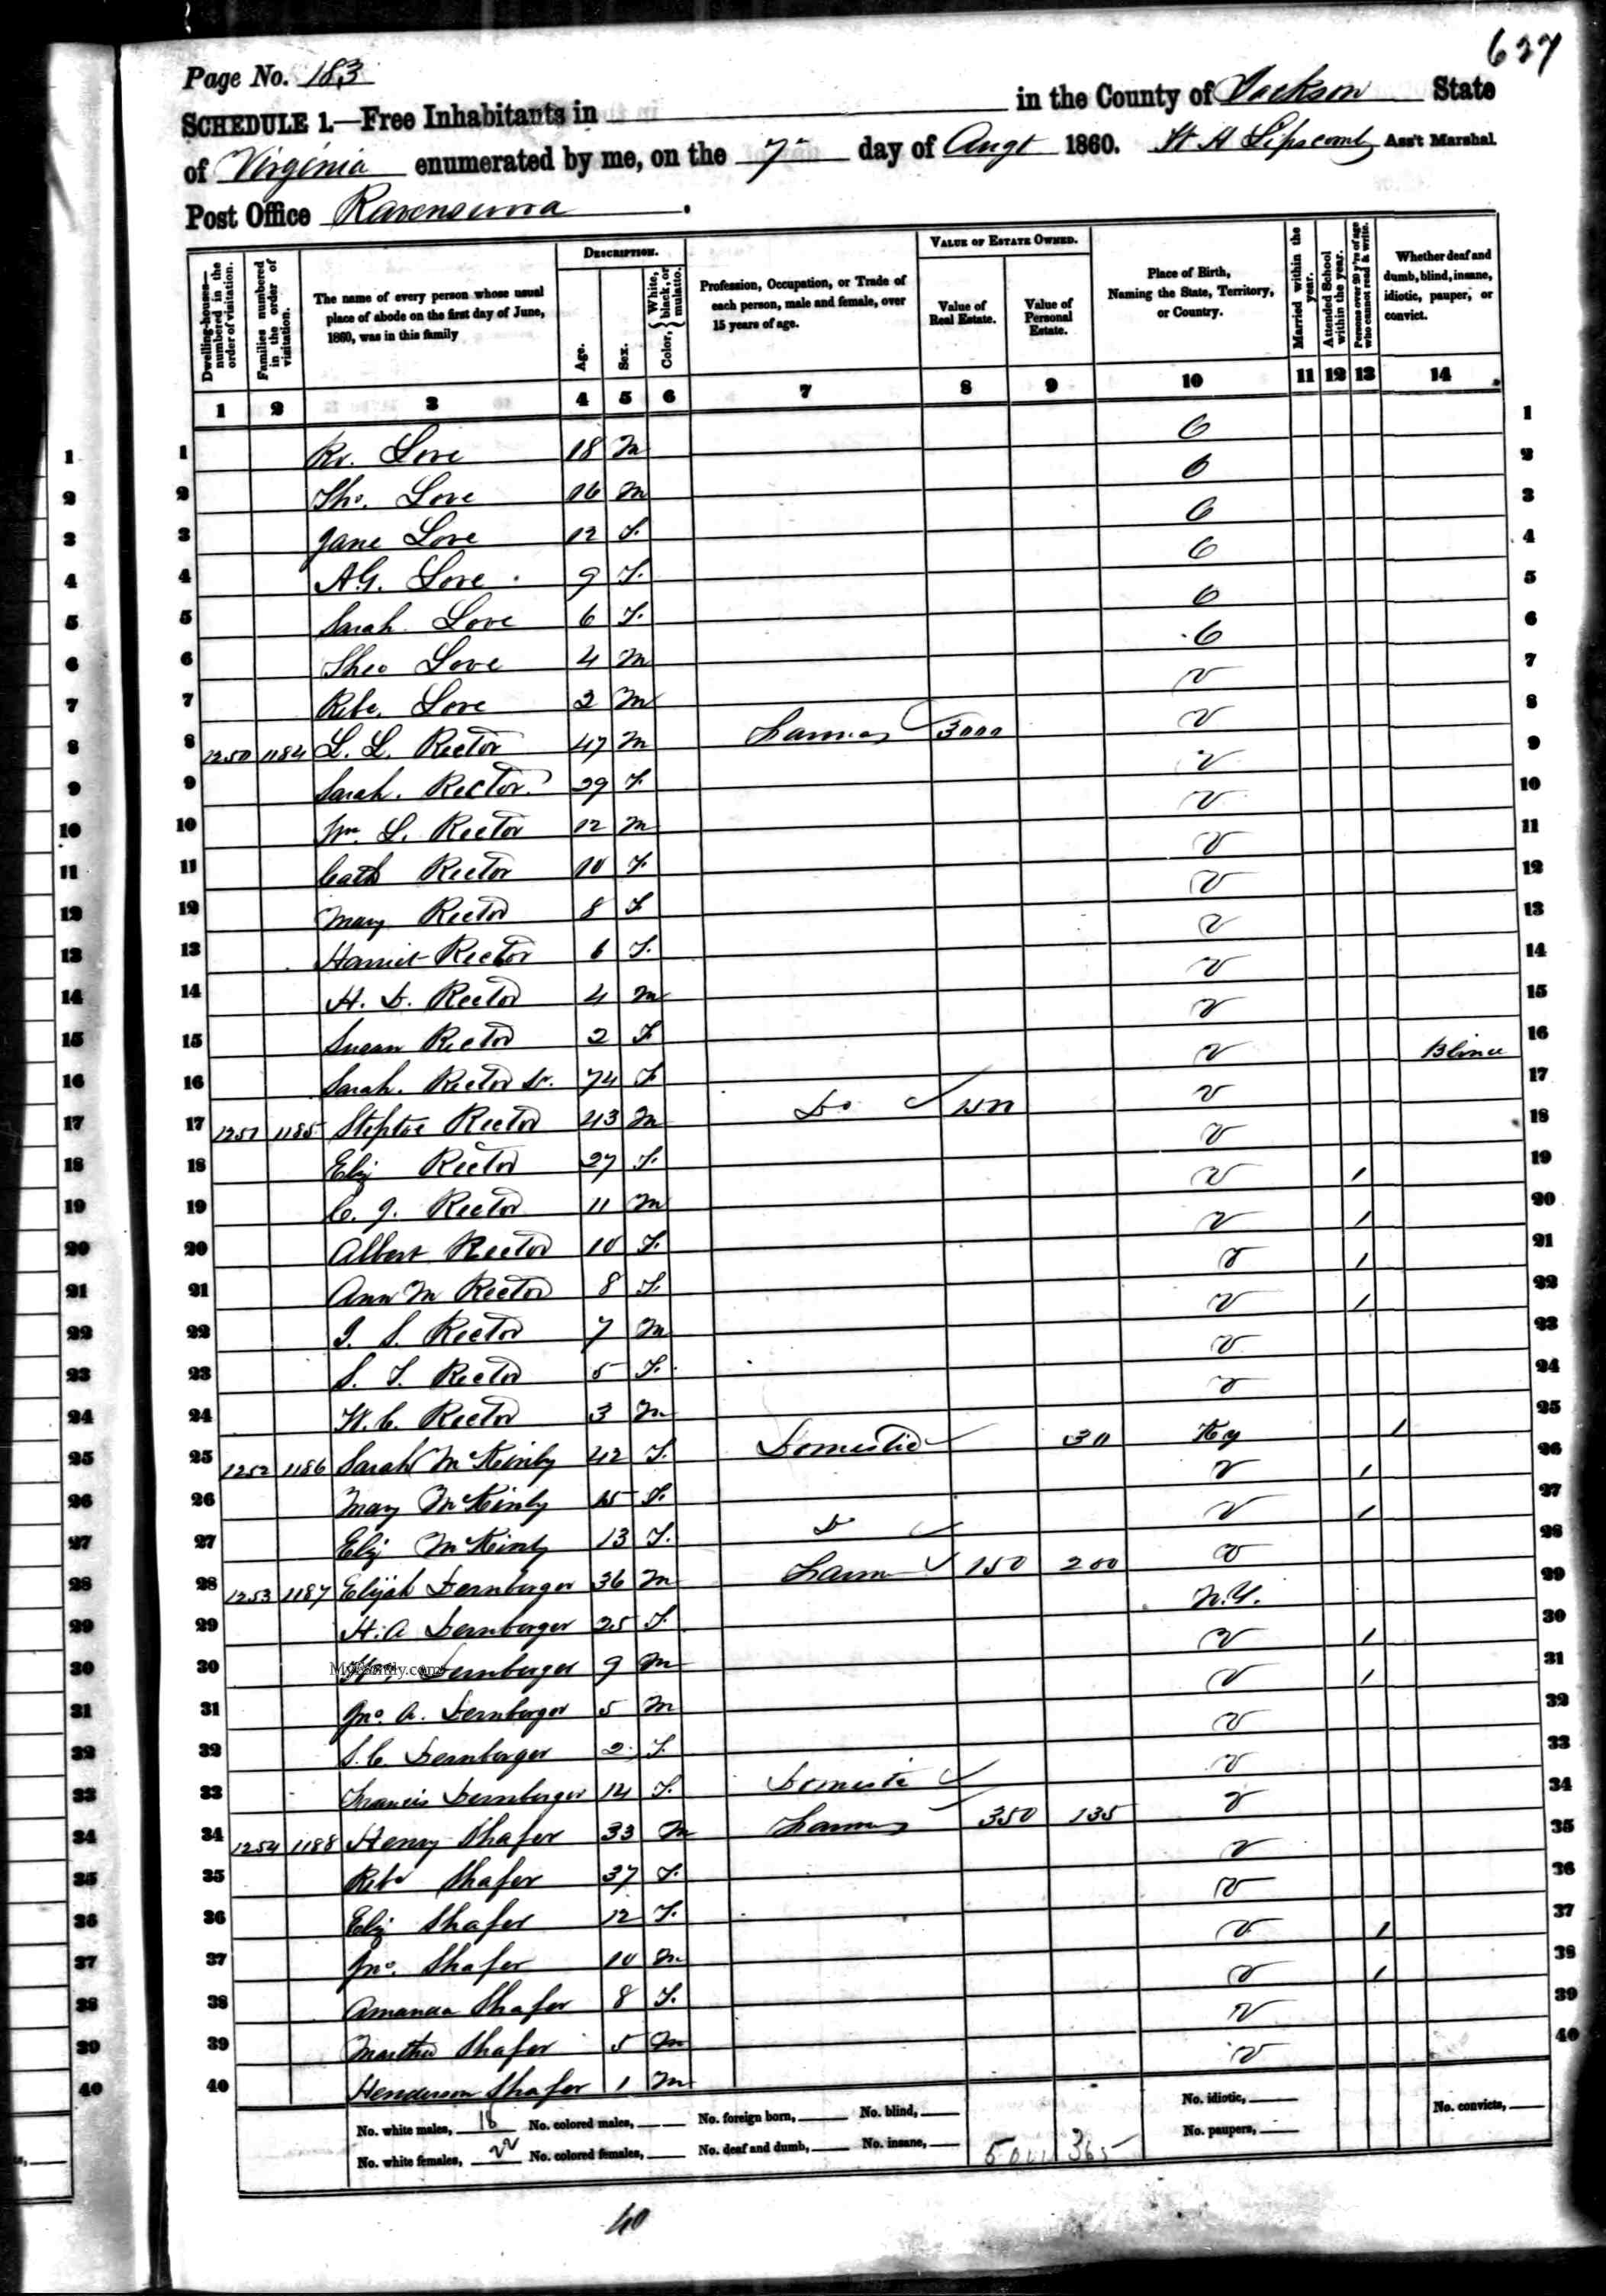 637
Page No. 183
SCHEDULE 1.—Free Inhabitants in in the County of Jackson State
of Virginia enumerated by me, on the 7 day of Augt 1860. Lipscomb Ass't Marshal.
Post Office
Dwelling-houses—numbered in the order of visitation.
Families numbered in the order of visitation.
The name of every person whose usual place of abode on the first day of June, 1860, was in this family
DESCRIPTION.
Age.
Sex.
Color, { White, black, or mulatto.
Profession, Occupation, or Trade of each person, male and female, over 15 years of age.
VALUE OF ESTATE OWNED.
Value of Real Estate.
Value of Personal Estate.
Place of Birth, Naming the State, Territory, or Country.
Married within the year.
Attended School within the year.
Persons over 20 y'rs of age who cannot read & write.
Whether deaf and dumb, blind, insane, idiotic, pauper, or convict.
1 2 3 4 5 6 7 8 9 10 11 12 13 14
1 Love 18 M 1
2 Tho. Love 16 M 2
3 Jane Love 12 F. 3
4 A.G. Love 9 F. 4
5 Sarah Love 6 F. 5
6 Theo Love 4 M 6
7 Rebe. Love 2 M v 7
8 1250 1184 L. L. Rector 47 M Farmer 3000 v 8
9 Sarah. Rector 29 F. v 9
10 Wm. L. Rector 12 M v 10
11 Cath Rector 10 F. v 11
12 Mary Rector 8 F v 12
13 Harriet Rector 6 F. v 13
14 H. D. Rector 4 M v 14
15 Susan Rector 2 F v 15
16 Sarah. Rector Sr. 74 F v Blind 16
17 1251 1185 Rector 43 M Do v 17
18 Eliz Rector 27 F. v 18
19 C. J. Rector 11 M v / 19
20 Albert Rector 10 F. v / 20
21 Ann M Rector 8 F. v / 21
22 S. Rector 7 M v / 22
23 S. Rector 5 F. v 23
24 W. C. Rector 3 M v 24
25 1252 1186 Sarah McKinly 42 F. Domestic 30 Ky / 25
26 Mary McKinly 15 F. v / 26
27 Eliz McKinly 13 F. D v / 27
28 1253 1187 Elijah Dernberger 36 M Farmer 150 200 v 28
29 H. A Dernberger 25 F. N.Y. 29
30 Dernberger 9 M v / 30
31 Jno. A. Dernberger 5 M v / 31
32 S. C. Dernberger 2 F. v 32
33 Francis Dernberger 14 F. Domestic v 33
34 1254 1188 Henry Shafer 33 M Farmer 350 135 v 34
35 Reba Shafer 37 F. v 35
36 Eliz Shafer 12 F. v 36
37 Jno. Shafer 10 M v / 37
38 Amanda Shafer 8 F. v / 38
39 Martha Shafer 5 M v 39
40 Henderson Shafer 1 M v 40
MyFamily.com
No. white males, 18 No. colored males, No. foreign born, No. blind, No. idiotic, No. convicts,
No. white females, 22 No. colored females, No. deaf and dumb, No. insane, 365 No. paupers,
40